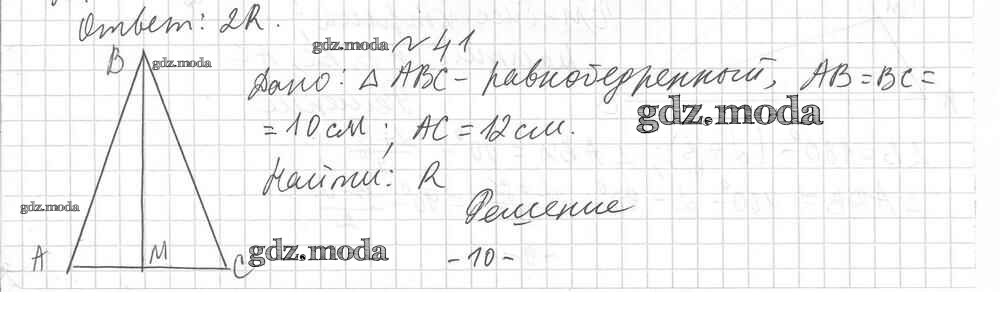 Ответ: 2R.
gdz.moda №41
B gdz.moda
Дано: △ ABC - равнобедренный, AB = BC =
= 10 см ; AC = 12 см.
gdz.moda
Найти: R
gdz.moda
Решение
A M C gdz.moda
- 10 -